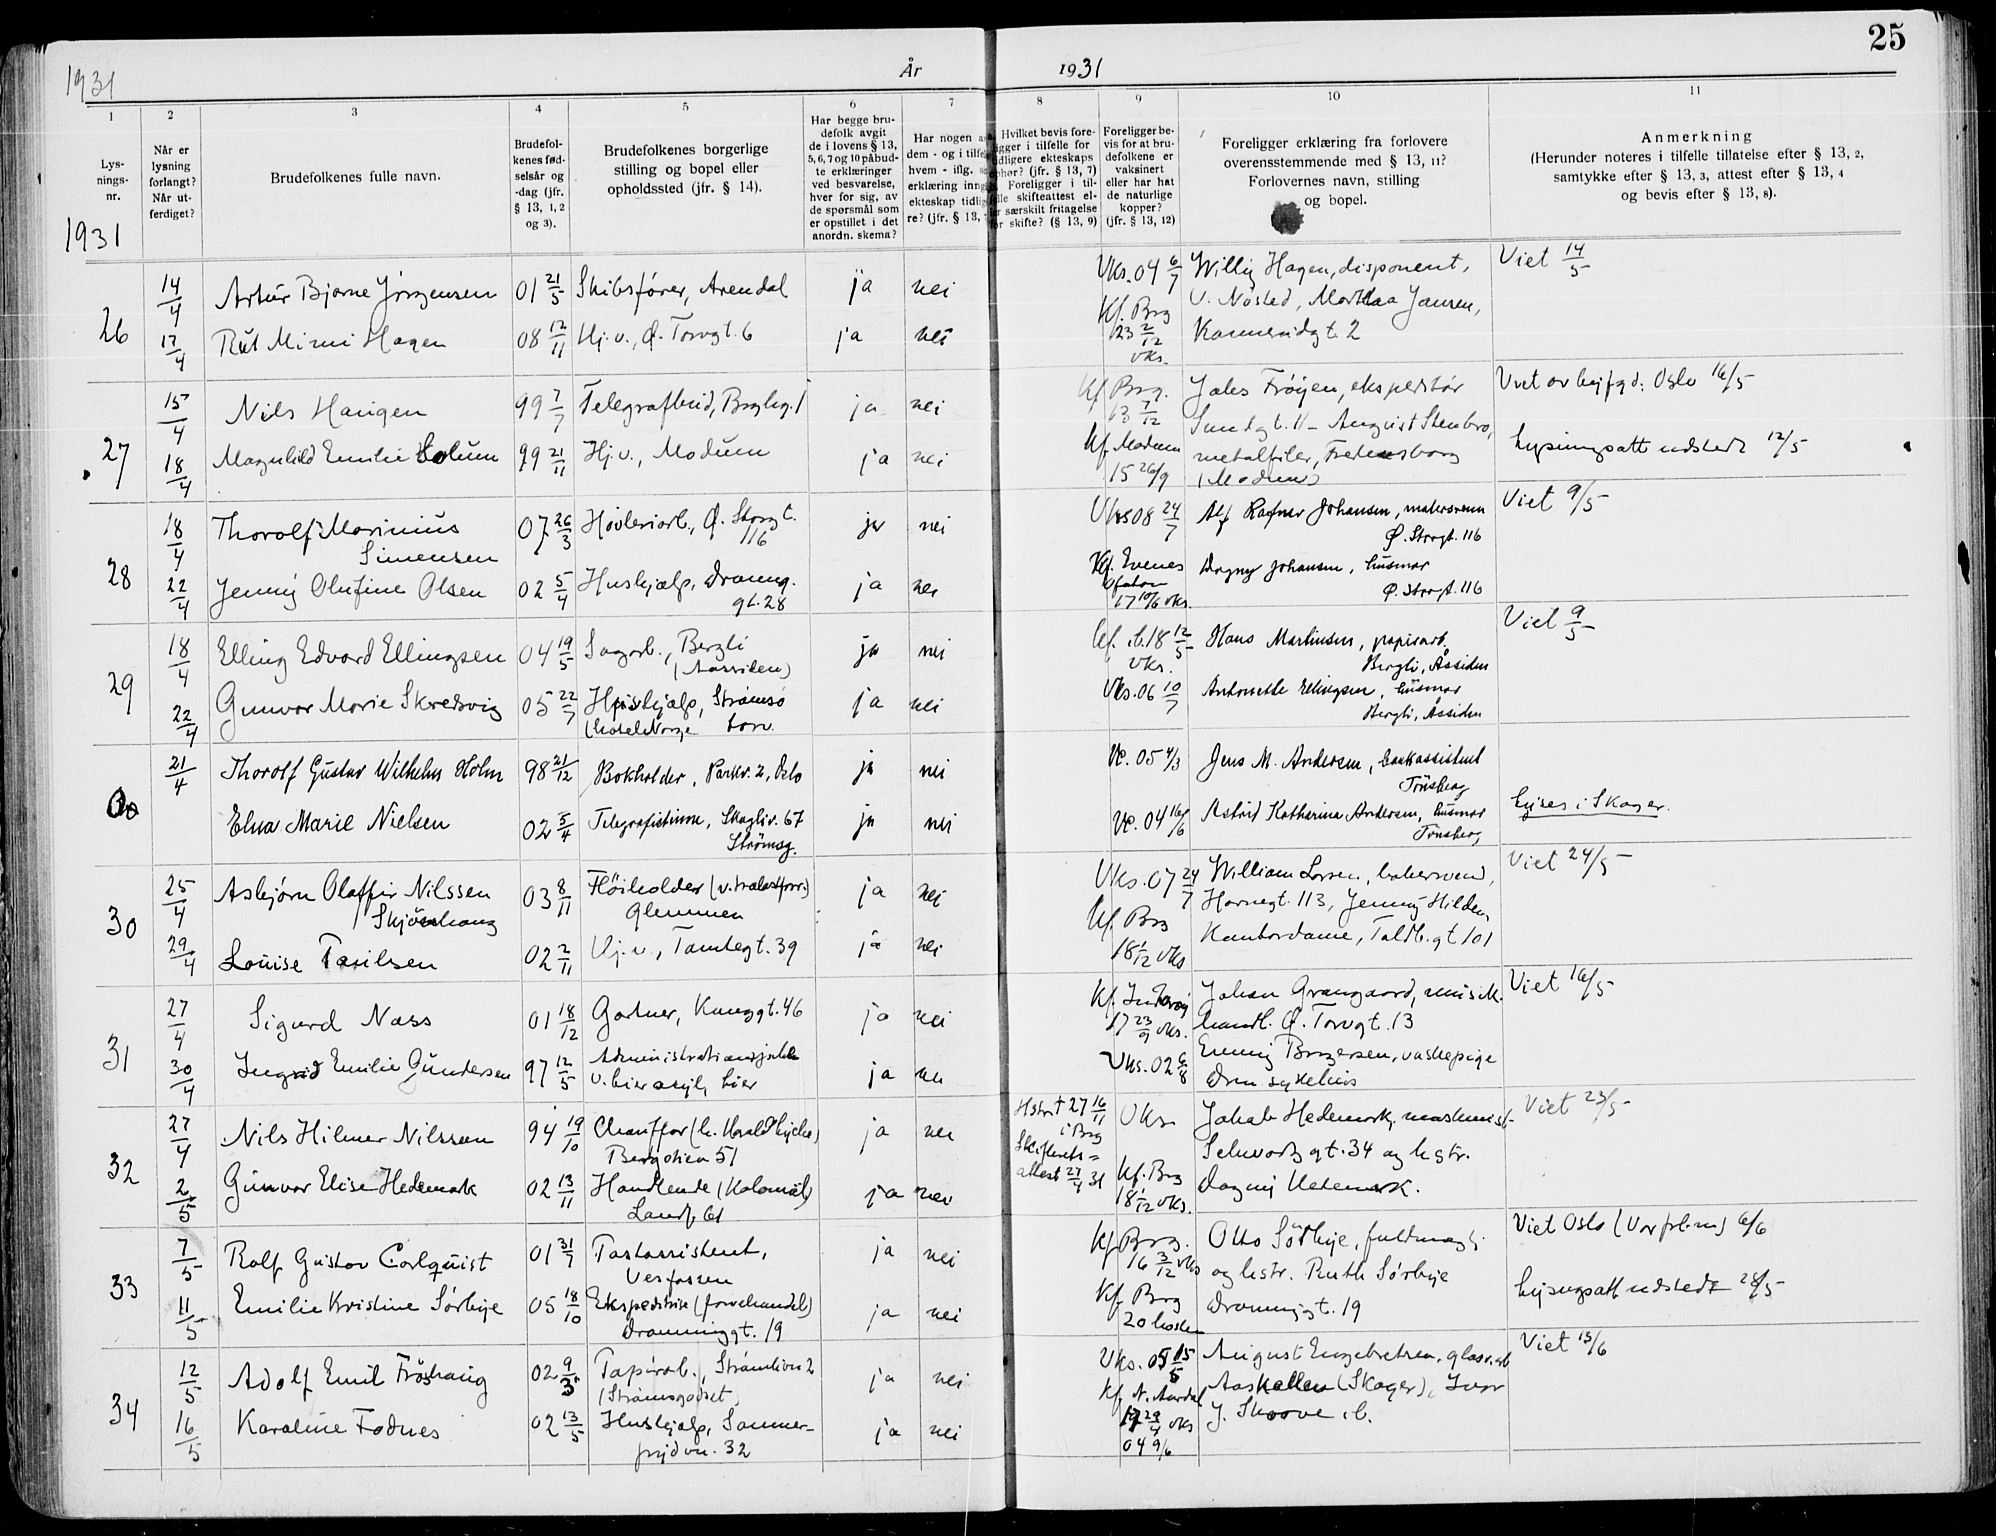 25
1931
År
1931
1
2
3
4
5
6
7
8
9
10
11
Lys-
nings-
nr.
Når er
lysning
forlangt?
Når ut-
ferdiget?
Brudefolkenes fulle navn.
Brudefol-
kenes fød-
selsår og
-dag (jfr.
§ 13, 1, 2
og 3).
Brudefolkenes borgerlige
stilling og bopel eller
opholdssted (jfr. § 14).
Har begge bru-
defolk avgit
de i lovens § 13,
5, 6, 7 og 10 påbud-
te erklæringer
ved besvarelse,
hver for sig, av
de spørsmål som
er opstillet i det
anordn. skema?
Har nogen
dem - og i
hvem - iflg.
erklæring
ekteskap
re? (jfr. § 13,
Hvilket bevis fore-
ligger i tilfelle for
tidligere ekteskaps
ophør? (jfr. § 13, 7)
Foreligger i til-
felle skifteattest el-
ler særskilt fritagelse
for skifte? (§ 13, 9)
Foreligger be-
vis for at bru-
defolkene er
vaksinert
eller har hat
de naturlige
kopper?
(jfr. § 13, 12)
Foreligger erklæring fra forlovere
overensstemmende med § 13, 11?
Forlovernes navn, stilling
og bopel.
Anmerkning
(Herunder noteres i tilfelle tillatelse efter § 13, 2,
samtykke efter § 13, 3, attest efter § 13, 4
og bevis efter § 13, 8).
1931
26
14/4 Artur Bjarne Jörgensen 01 21/5 Skibsfører, Arendal ja nei Vks. 04 6/7 Willy Hagen, disponent, Viet 14/5
V. Nøsted, Marthaa Jansen,
17/4 Rut Mimi Hagen 08 12/11 Hj.v., Ø. Torvgt. 6 ja nei Kf. Brg 23 2/12 vks. 2
27
15/4 Nils Haugen 99 7/7 Telegrafbud, ja nei Kf Brg. 13 7/12 Frøyen, ekspeditør Viet Oslo 16/5
Sundgt. 11 – August Stenbro,
18/4 Magnhild Emilie Solum 99 21/11 Hj.v., Modum ja nei Kf. Modum 15 26/9 Lysningsatt utstedt 12/5
(Modum)
28
18/4 Thorolf Marinius
Simensen 07 26/3 Høvleriarb., Ø. Storgt.
116 ja nei Vks 08 24/7 Alf Ragnar Johansen, malersvenn Viet 9/5
Ø. Storgt. 116
22/4 Jenny Olufine Olsen 02 5/4 Hushjelp, Dronng.
gt. 28 ja nei Kf. Evenes
Ofoten
17 10/6 vks. Dagny Johansen, husmor
Ø. Storgt. 116
29
18/4 Elling Edvard Ellingsen 04 19/5 Sagarb., Bergli
(Aassiden) ja nei 18 12/5
vks. Hans Martinsen, papirarb, Viet 9/5
Bergli, Åssiden
22/4 Gunvor Marie Skredsvig 05 22/7 Hushjelp, Strømsø
(Hotel Norge torv. ja nei Vks. 06 10/7 Antonette Ellingsen, husmor
Bergli, Åssiden
21/4 Thorolf Gustav Wilhelm Holm 98 21/12 Bokholder, Parkv. 2, Oslo ja nei Vc. 05 4/3 Jens M. Andersen, bankassistent
Tönsberg
Elna Marie Nielsen 02 5/4 Telegrafistinne, Skogliv. 67
Strømsg. ja nei Vc. 04 16/6 Astrid Katharina Andersen, husmor
Tønsberg
Lyses i Skoger.
30
25/4 Asbjørn Olaffir Nilssen
Skjönhaug 03 8/11 Fløiholder
Glemmen ja nei Vks. 07 24/7 William Larsen, bakersvend, Viet 24/5
Havnegt. 113, Jenny Hilden,
29/4 Louise 02 2/11 Hj.v., Tomtegt. 39 ja nei Kf. Brg
18 1/12 vks Kontordame, Toldb.gt 101
31
27/4 Sigurd Næss 01 18/12 Gartner, Konggt. 46 ja nei Kf.
17 23/9 vks. Johan Grangaard, musik- Viet 16/5
handl. Ø. Torvgt. 13
30/4 Ingrid Emilie Gundersen 97 12/5
v. Lier asyl, Lier ja nei Vks. 02 6/8 Emmy Børgersen, vaskepige
Drm sykehus
32
27/4 Nils Hilmer Nilssen 94 19/10 Chauffør
Bergstien 51 ja nei Hstrt 27 16/11
i Brg
Skifterets-
attest 27/4 31 Vks. Jakob Hedemark, maskinist Viet 23/5
Schwartz gt. 34 og hstr.
2/5 Gunvor Elise Hedemark 02 13/11 Handlende (Kolonial)
Landf. 61 ja nei Kf. Brg
18 1/12 vks. Dagny Hedemark.
33
7/5 Rolf Gustav Carlquist 01 31/7 Postassistent,
Vestfossen ja nei Kf Brg.
16 3/12 vks Otto Sørbye, fuldmegt. Viet Oslo 6/6
og hstr. Ruth Sørbye
11/5 Emilie Kristine Sørbye 05 18/10 Ekspeditrise (farvehandel)
Dronninggt. 19 ja nei Kf. Brg
20 Dronninggt. 19
Lysngsatt utstedt 28/5
34
12/5 Adolf Emil Fröshaug 02 9/3 Papirarb., Strømlivn 2
(Strømsgodset, ja nei Vks. 05 15/5 August Engebretsen, glasarb Viet 13/6
Aaskollen (Skoger), Ivar
16/5 Karoline Fodnes 02 13/5 Hushjelp, Sommer-
frydvn. 32 ja nei Kf. N. Aurdal
17 29/4 vks
04 9/6 J. Skoove ib.